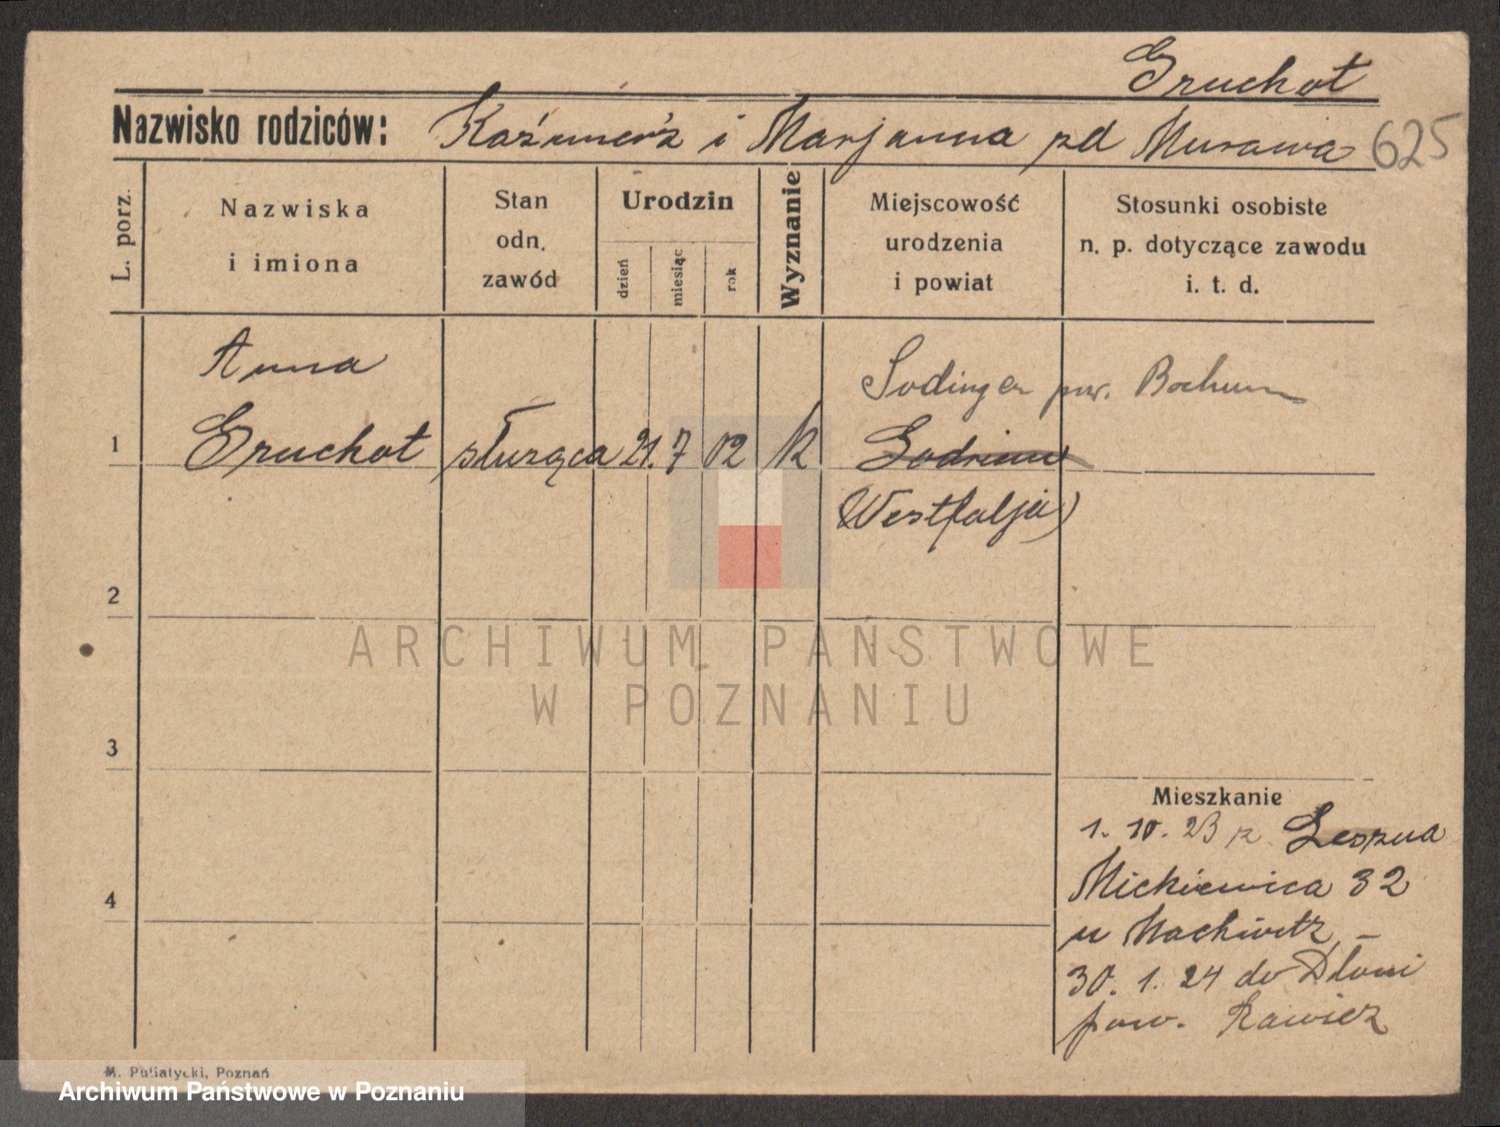 Gruchot
Nazwisko rodziców: Kaźmierz i Marjanna zd Murawa 625
L. porz.
Nazwiska
i imiona
Stan
odn.
zawód
Urodzin
dzień
miesiąc
rok
Wyznanie
Miejscowość
urodzenia
i powiat
Stosunki osobiste
n. p. dotyczące zawodu
i. t. d.
Anna
Sodingen pow. Bochum
1 Gruchot służąca 21. 7 02 k
Westfalja)
2
ARCHIWUM PAŃSTWOWE
W POZNANIU
3
Mieszkanie
1. 10. 23 z Leszna
4 Mickiewicza 32
u
30. 1. 24 do Dłoni
pow. Rawicz
M. Putiatycki, Poznań
Archiwum Państwowe w Poznaniu